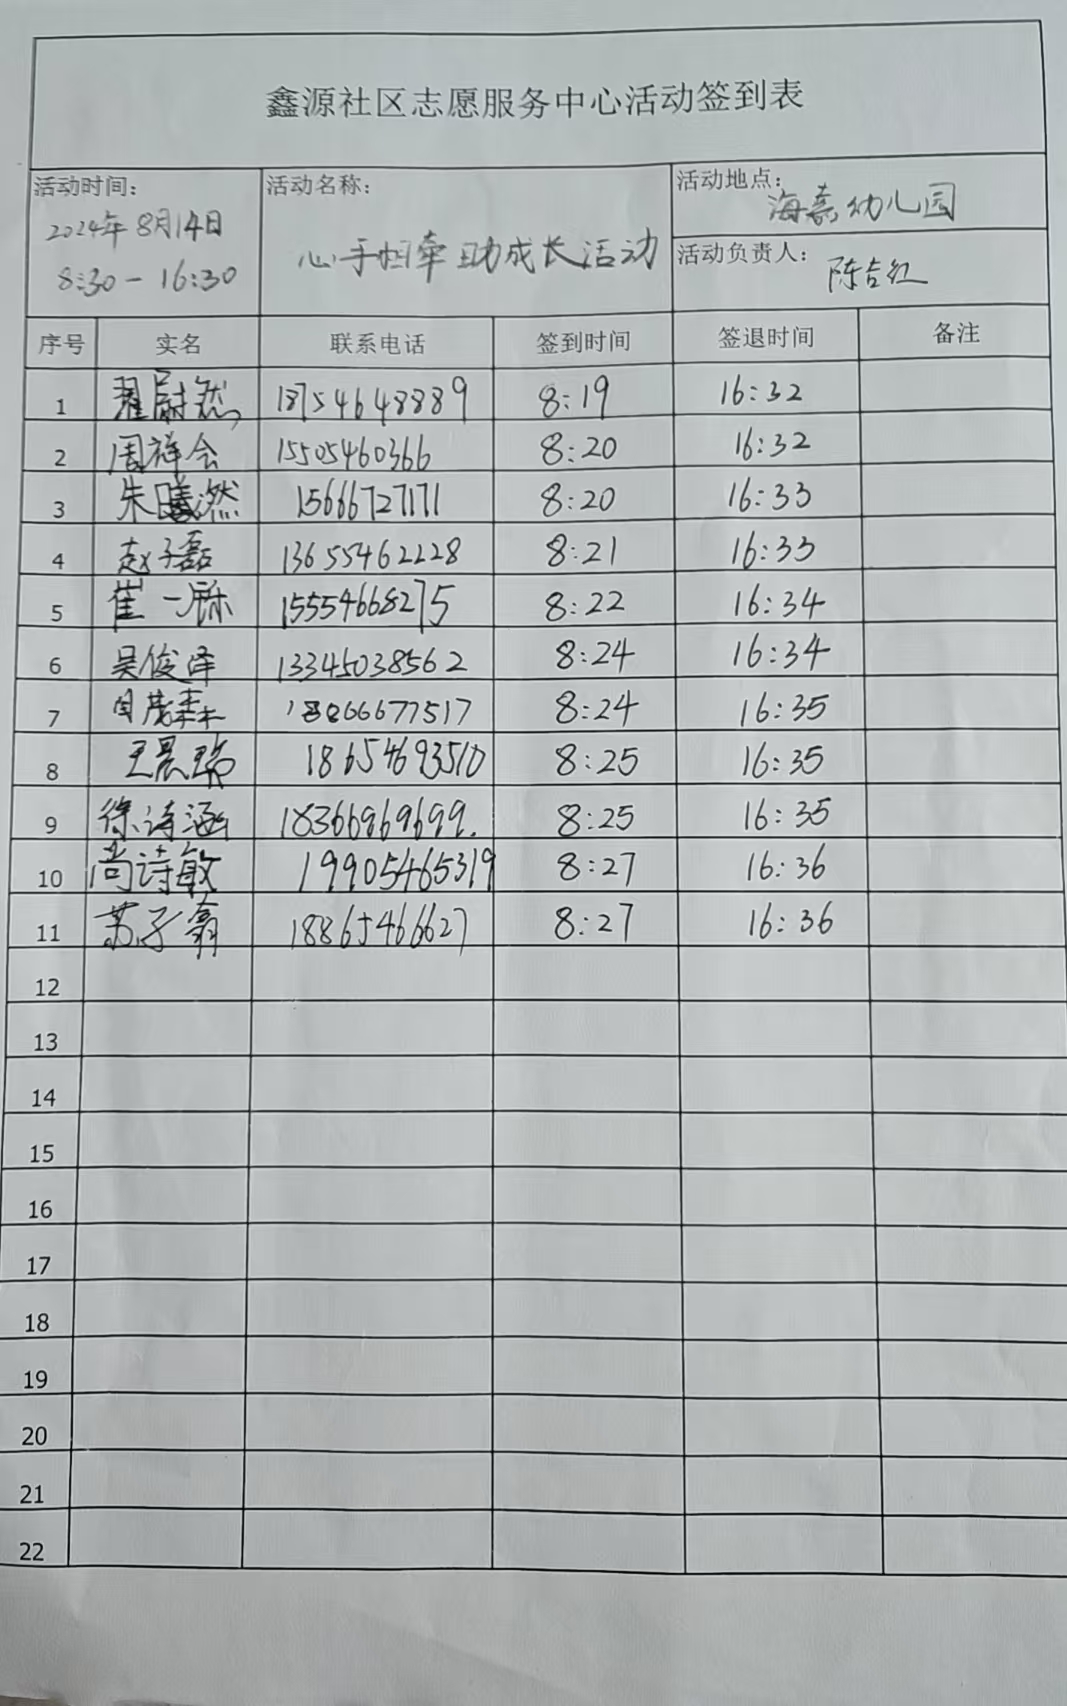 鑫源社区志愿服务中心活动签到表
活动时间：
2024年8月14日
8:30-16:30
活动名称：
心手相牵 助成长活动
活动地点：
海嘉幼儿园
活动负责人：
陈吉红
序号 实名 联系电话 签到时间 签退时间 备注
1 翟尉然 18754648889 8:19 16:32
2 周祥会 15505460366 8:20 16:32
3 朱曦然 15666727171 8:20 16:33
4 赵子磊 13655462228 8:21 16:33
5 崔一 15554668275 8:22 16:34
6 吴俊泽 13345038562 8:24 16:34
7 18866677517 8:24 16:35
8 王晨瑞 18654693510 8:25 16:35
9 徐诗涵 18366969699. 8:25 16:35
10 尚诗敏 19905465319 8:27 16:36
11 苏子 18865466627 8:27 16:36
12
13
14
15
16
17
18
19
20
21
22